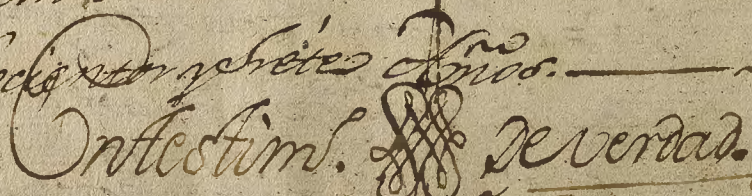 cientos y siete Años.
En testimº. de verdad.